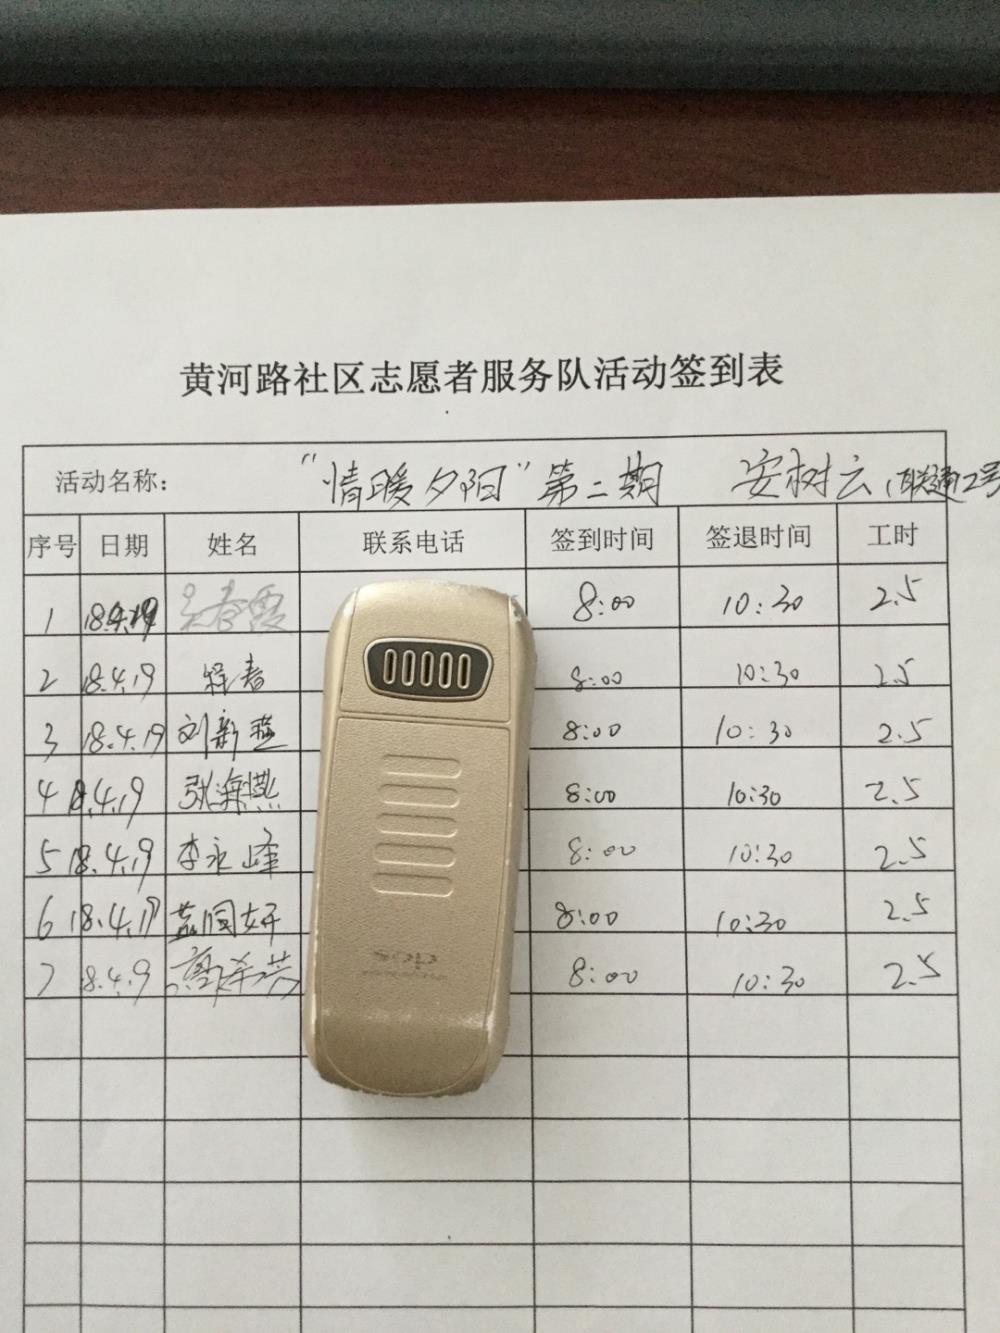 黄河路社区志愿者服务队活动签到表
活动名称: "情暖夕阳"第二期 安树云(联通2号
序号 日期 姓名 联系电话 签到时间 签退时间 工时
1 18.4.19 吴春霞 8:00 10:30 2.5
2 18.4.19 春 8:00 10:30 2.5
3 18.4.19 刘新燕 8:00 10:30 2.5
4 18.4.19 张海燕 8:00 10:30 2.5
5 18.4.19 李永峰 8:00 10:30 2.5
6 18.4.19 8:00 10:30 2.5
7 18.4.19 8:00 10:30 2.5